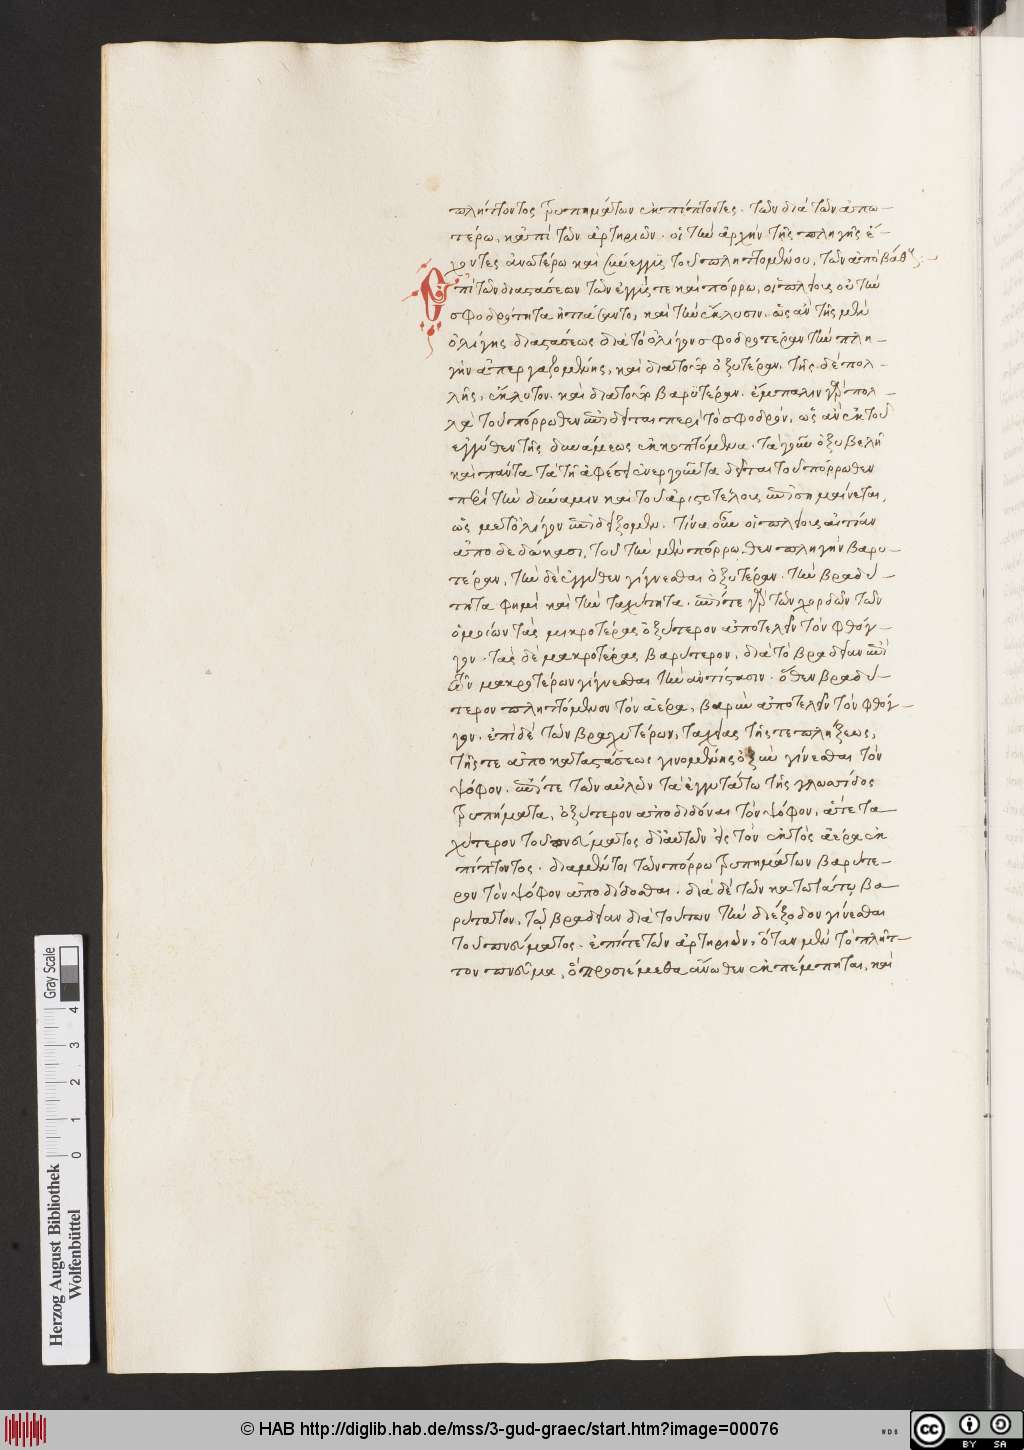 πλήττοντος τρυπημάτων ἐκπίπτοντες. τῶν διὰ τῶν ἀπω-
τέρω, κἀπὶ τῶν ἀρτηριῶν. οἱ τὴν ἀρχὴν τῆς πληγῆς ἔ-
χοντες ἀνωτέρω καὶ σύνεγγυς τοῦ πλήττομένου, τῶν ἀπὸ βάθους.
Ἐπὶ τῶν διαστάσεων τῶν ἐγγύς τε καὶ πόρρω, οἱ πλείους οὐ τὴν
σφοδρότητα ᾐτιάσαντο, καὶ τὴν ἔκλυσιν. ὡς ἂν τῆς μὲν
ὀλίγης διαστάσεως διὰ τὸ ὀλίγον σφοδροτέραν τὴν πλη-
γὴν ἀπεργαζομένης, καὶ διὰ τοῦτο ὀξυτέραν. τῆς δὲ πολ-
λῆς, ἔκλυτον. καὶ διὰ τοῦτο βαρυτέραν. ἔμπαλιν γὰρ πολ-
λὰ τοῦ πόρρωθεν ἐπιδεῖται περὶ τὸ σφοδρόν, ὡς ἂν ἐκ τοῦ
ἐγγύθεν τῆς δυνάμεως ἐκκοπτόμενα. τὰ γοῦν ὀξυβελῆ
καὶ πάντα τὰ τῇ ἀφέσει ἐνεργοῦντα δεῖται τοῦ πόρρωθεν
περὶ τὴν δύναμιν καὶ τοῦ ἀριστοτέλους ἐπισημαίνεται,
ὡς μετ' ὀλίγον ἐπιδείξομεν. τίνα οὖν οἱ πλείους αἰτίαν
ἀποδεδώκασι, τοῦ τὴν μὲν πόρρωθεν πληγὴν βαρυ-
τέραν, τὴν δὲ ἐγγύθεν γίγνεσθαι ὀξυτέραν. τὴν βραδύ-
τητα φημὶ καὶ τὴν ταχύτητα. ἐπί τε γὰρ τῶν χορδῶν τῶν
ὁμοίων τὰς μικροτέρας ὀξύτερον ἀποτελεῖν τὸν φθόγ-
γον. τὰς δὲ μακροτέρας βαρύτερον, διὰ τὸ βραδεῖαν ἐπὶ
τῶν μακροτέρων γίγνεσθαι τὴν ἀντίστασιν. ὅθεν βραδύ-
τερον πληττόμενον τὸν ἀέρα, βαρὺν ἀποτελεῖν τὸν φθόγ-
γον. ἐπὶ δὲ τῶν βραχυτέρων, ταχείας τῆς τε πλήξεως,
τῆς τε ἀποκαταστάσεως γινομένης ὀξὺν γίνεσθαι τὸν
ψόφον. ἐπί τε τῶν αὐλῶν τὰ ἐγγυτάτω τῆς γλωττίδος
τρυπήματα, ὀξύτερον ἀποδιδόναι τὸν ψόφον, ἅτε τα-
χύτερον τοῦ πνεύματος δι' αὐτῶν εἰς τὸν ἐκτὸς ἀέρα ἐκ
πίπτοντος. διαμέντοι τῶν πόρρω τρυπημάτων βαρύτε-
ρον τὸν ψόφον ἀποδίδοσθαι. διὰ δὲ τῶν κατωτάτω βα-
ρύτατον, τῷ βραδεῖαν διὰ τούτων τὴν διέξοδον γίνεσθαι
τοῦ πνεύματος. ἐπί τε τῶν ἀρτηριῶν, ὅταν μὲν τὸ πλῆτ-
τον πνεῦμα, ὃ προσιέμεθα ἄνωθεν ἐκπέμπηται, καὶ
Herzog August Bibliothek
Wolfenbüttel
0 1 2 3 4
Gray Scale
© HAB http://diglib.hab.de/mss/3-gud-graec/start.htm?image=00076
cc BY SA